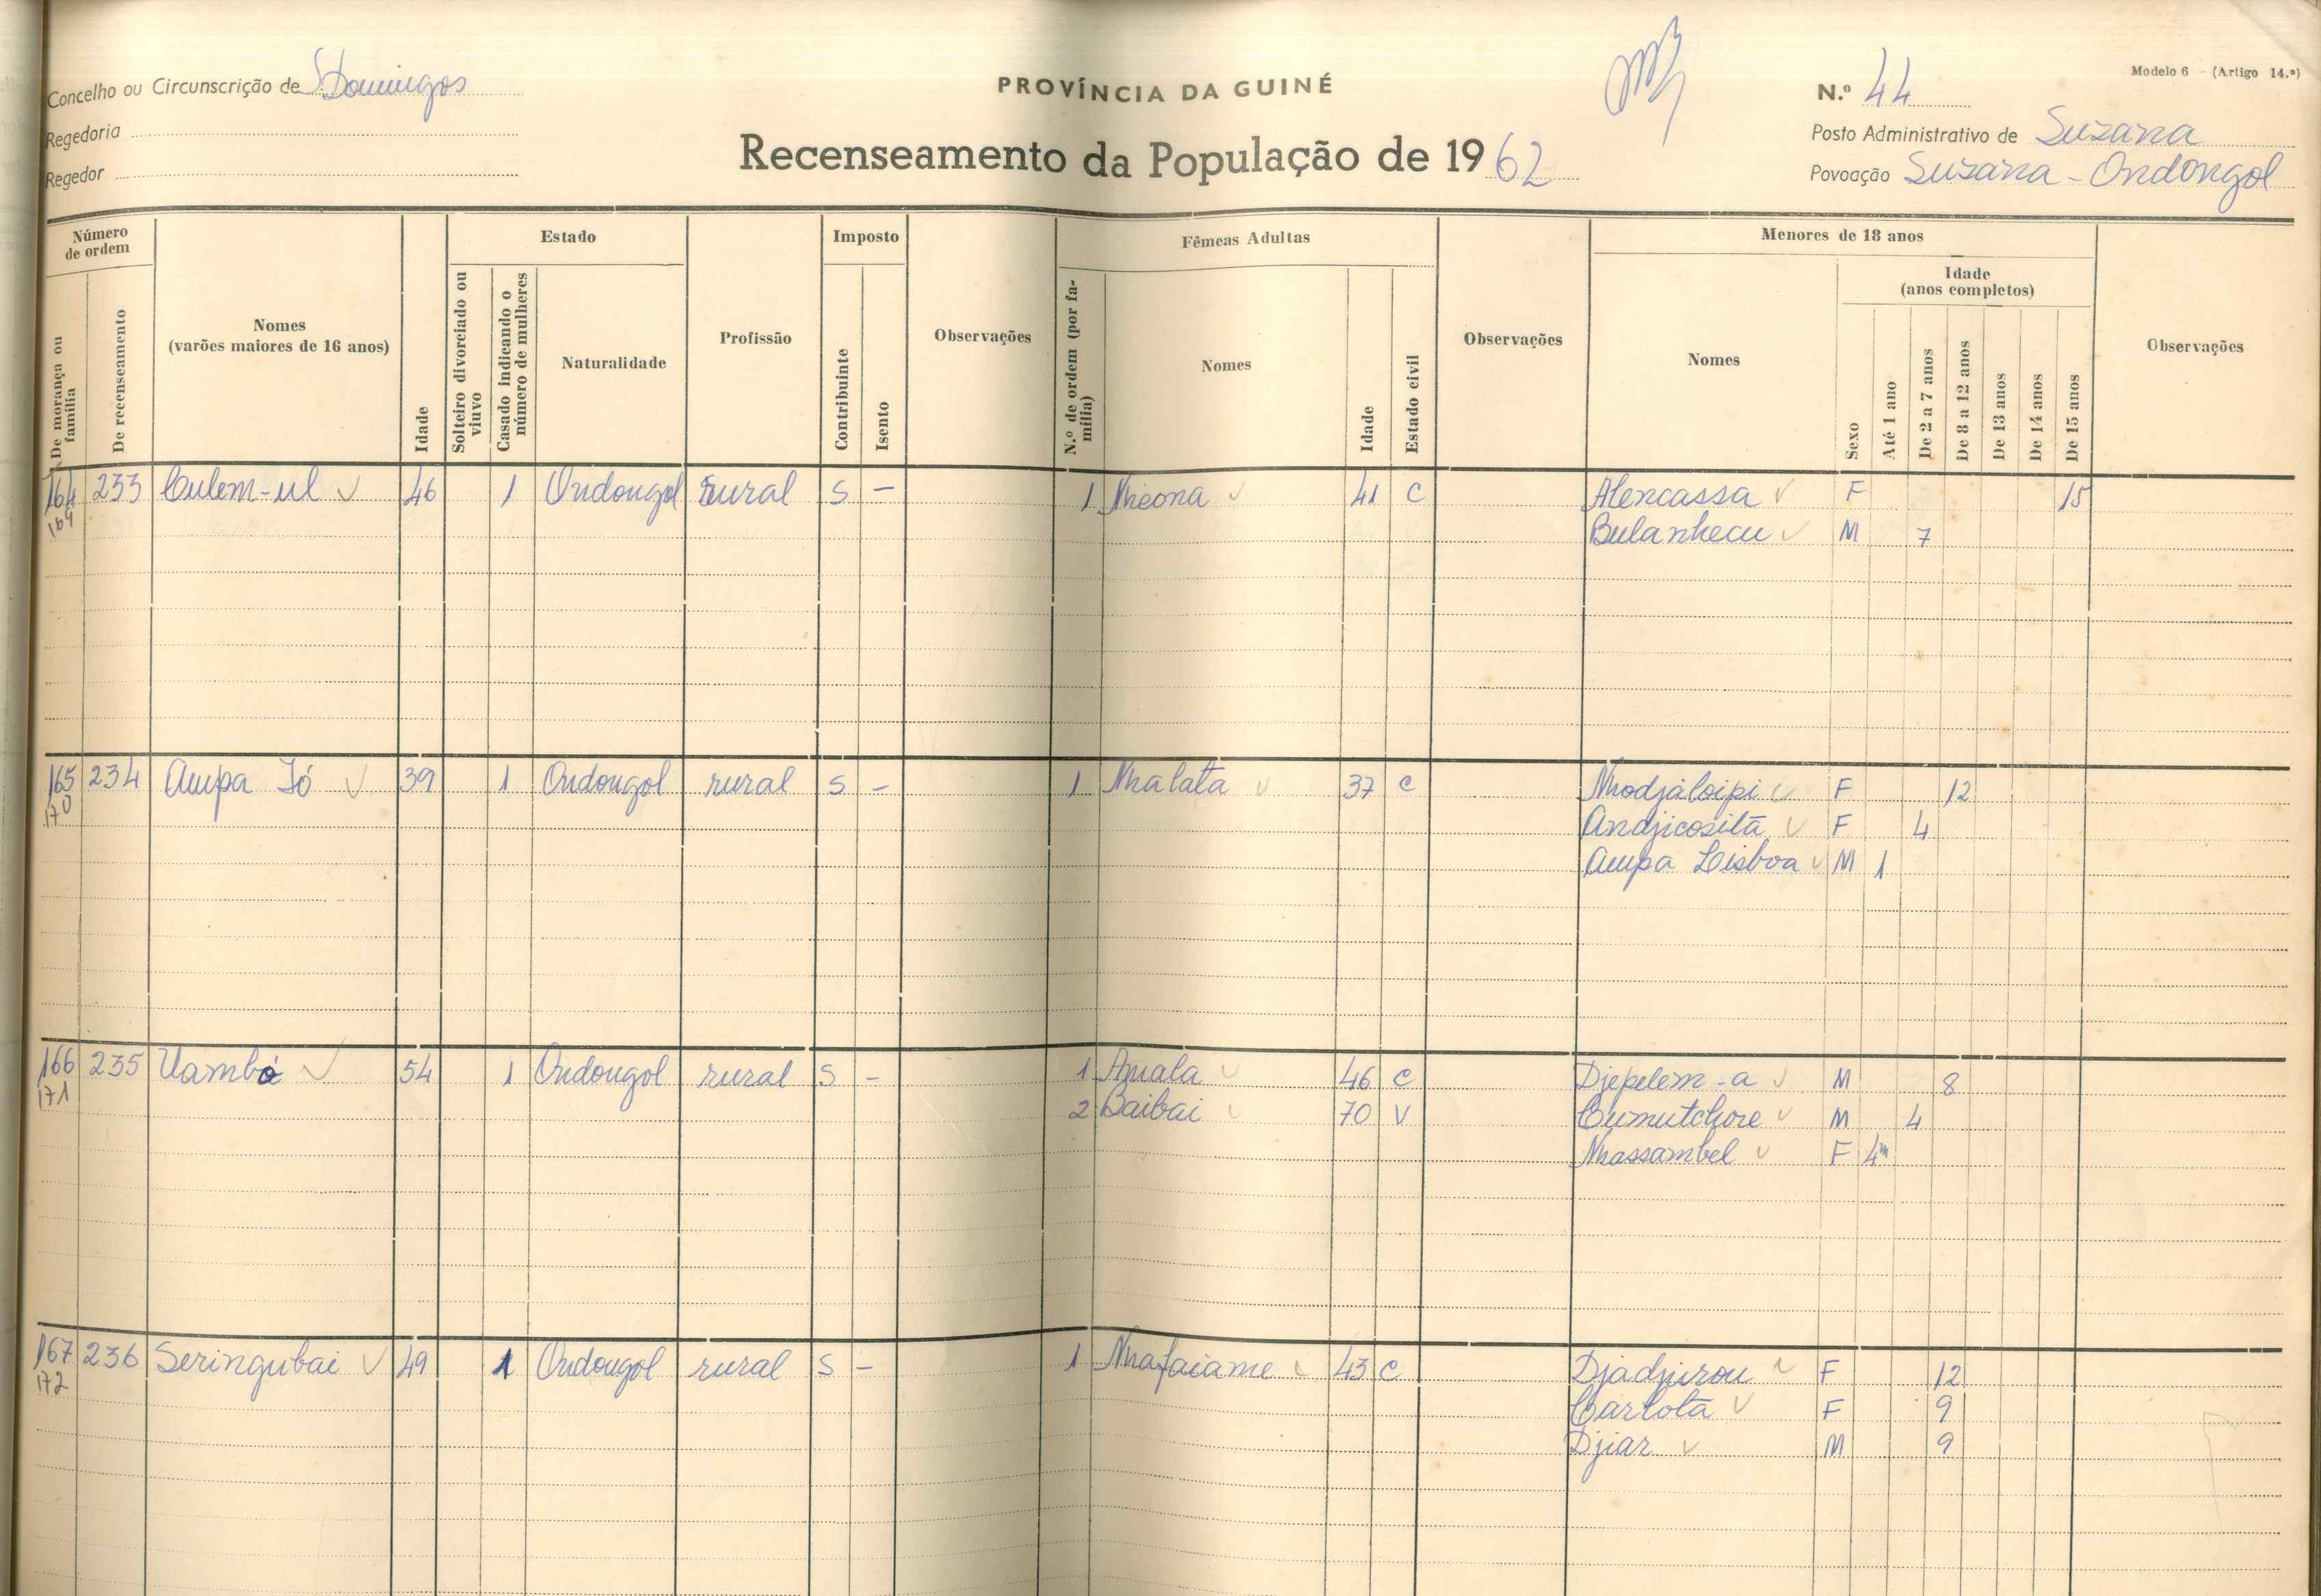 Concelho ou Circunscrição de S. Domingos
Regedoria
Regedor
PROVÍNCIA DA GUINÉ
Recenseamento da População de 1962
Modelo 6 - (Artigo 14.º)
N.º 44
Posto Administrativo de Suzana
Povoação Suzana - Ondongol
Número de ordem
De morança ou família
De recenseamento
Nomes
(varões maiores de 16 anos)
Idade
Estado
Solteiro divorciado ou viuvo
Casado indicando o número de mulheres
Naturalidade
Profissão
Imposto
Contribuinte
Isento
Observações
Fêmeas Adultas
N.º de ordem (por família)
Nomes
Idade
Estado civil
Observações
Menores de 18 anos
Nomes
Sexo
Idade
(anos completos)
Até 1 ano
De 2 a 7 anos
De 8 a 12 anos
De 13 anos
De 14 anos
De 15 anos
Observações
164 233 Culem-ul 46 1 Ondongol rural S - 1 Nheona 41 C Alencassa F 15
169 Bulanhecu M 7
165 234 Aupa Jó 39 1 Ondongol rural S - 1 Nhalata 37 C Nhodjaloipi F 12
170 Andjicosita F 4
Aupa Lisboa M 1
166 235 Uambo 54 1 Ondongol rural S - 1 Amala 46 C Djepelem-a M 8
171 2 Baibai 70 V Cumutchore M 4
Nhassambel F 4m
167 236 Seringubai 49 1 Ondongol rural S - 1 Nhafaiame 43 C Djadjurou F 12
172 Carlota F 9
Djiar M 9